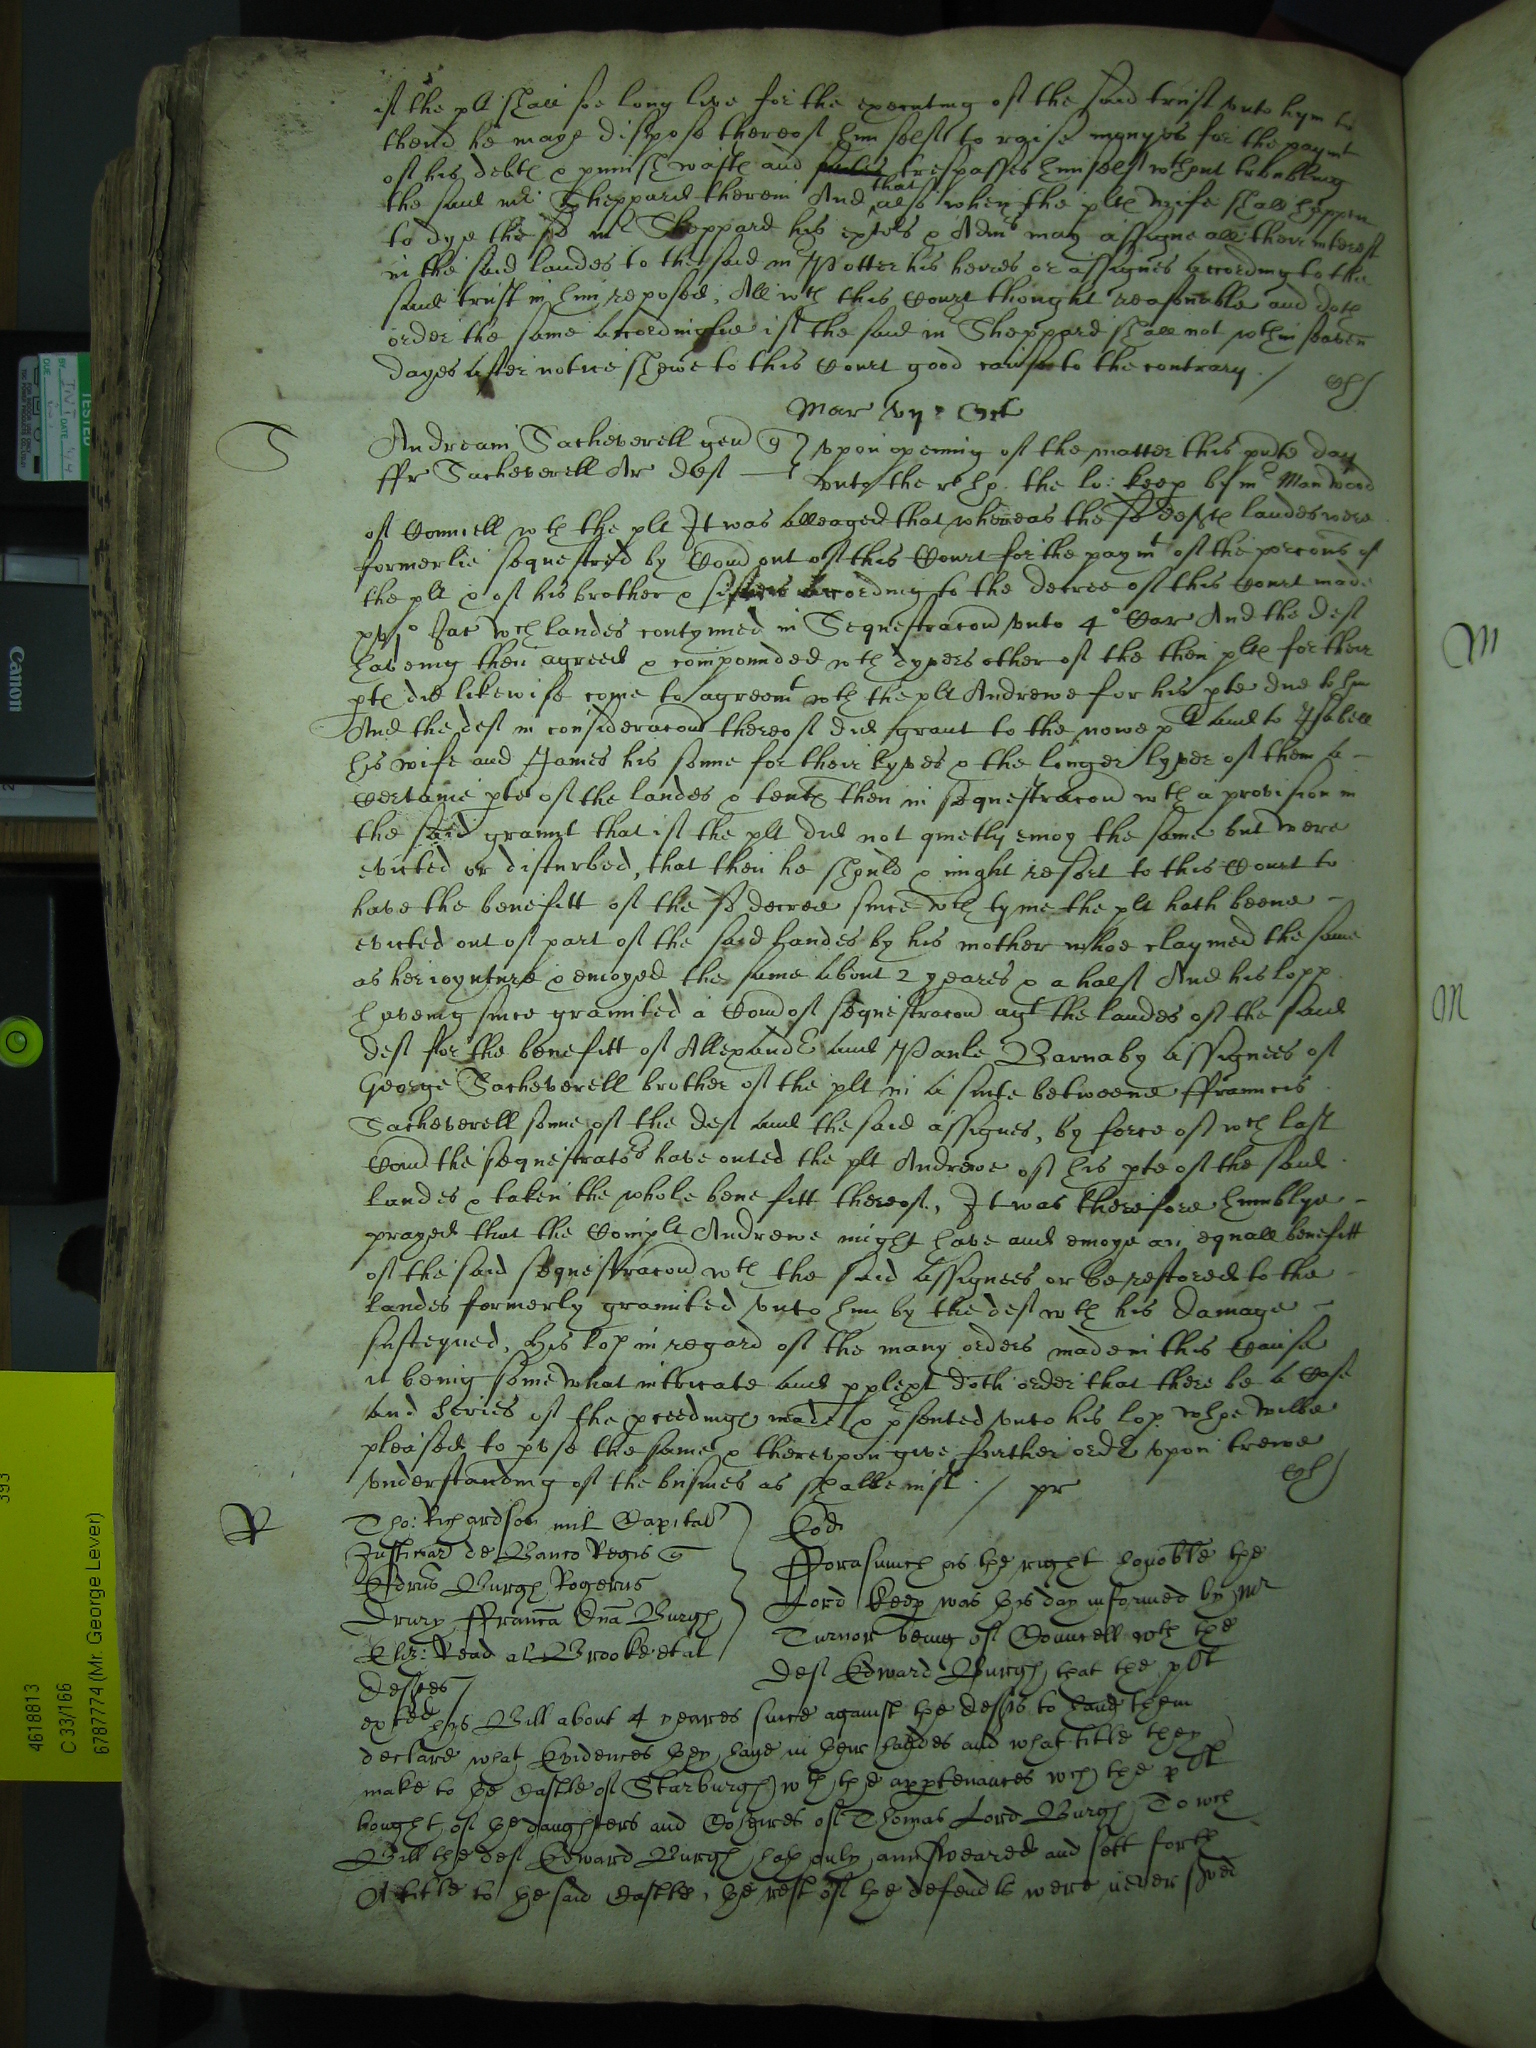 if the plt shall soe long live for the executing of the said trust unto hym to
thend he maye dispose thereof him selfe to raise monyes for the paymt
of his debts & punish waste and trespasses himself wthout trubling
the said mr Sheppard therein And that also when the plts wife shall happen
to dye the sd mr Sheppard his exrs & Admrs may assigne all their interest
in the said landes to the said mr Potter his heires or assignes according to the
said trust in him reposed, All wch this Court thought reasonable and doth
order the same accordinglie if the said mr Sheppard shall not wthin seaven
dayes after notice shewe to this Court good cause to the contrary /
Mar vijo Oct
S
Andream Sacheverell gen q
ffr Sacheverell Ar deft
upon opening of the matter this pnte day
unto the rt ho: the lo: keep by mr Manwood
of Councell wth the plt It was alleaged that whereas the sd defts landes were
formerlie sequestred by Comd out of this Court for the paymt of the porcons of
the plt & of his brother & sisters according to the decree of this Court made
Jac wch landes contynued in Sequestracon unto 4o Car And the deft
haveing then agreed & compounded wth dyvers other of the then plts for their
pts did likewise come to agreemt wth the plt Andrewe for his pte due to him
And the deft in consideracon thereof did graunt to the nowe plt and to Isabell
his wife and James his sonne for their lyves & the longer lyver of them a
certaine pte of the landes & tents then in sequestracon wth a provision in
the said graunt that if the plt did not quietly enioy the same but were
evicted or disturbed, that then he should & might resort to this Court to
have the benefitt of the sd decree since wch tyme the plt hath beene
evicted out of part of the said landes by his mother whoe claymed the same
as her ioynture & enioyed the same about 2 yeares & a halfe And his lopp
haveing since graunted a Comd of sequestracon agt the landes of the said
deft for the benefitt of Allexandr and Paule Barnaby assignees of
George Sacheverell brother of the plt in a suite betweene ffrauncis
Sacheverell sonne of the deft and the said assignes, by force of wch last
Comd the sequestrators have outed the plt Andrewe of his pte of the said
landes & taken the whole benefitt thereof, It was therefore humblye
prayed that the Complt Andrewe might have and enioye an equall benefitt
of the said sequestracon wth the said assignees or be restored to the
landes formerly graunted unto him by the deft wth his damage
susteyned, His lop in regard of the many orders made in this Cause
it being somewhat intricate and pplext doth order that there be a Case
and Series of the pceedings made & psented unto his lop whoe wilbe
pleased to pvse the same & thereupon give further ordr upon trewe
understanding of the busines as shalbe iust / pr
R
Tho: Richardson mil Capital
Justiciar de Banco Regis q
Edrus Burgh Rogerus
Drury ffranca Ana Burgh
Eliz: Read al Brooke et al
deftes
Eod
Fforasmuch as the right honoble the
Lord Keep was this day informed by Mr
Turnor being of Councell wth the
deft Edward Burgh that the plt
exhted his Bill about 4 yeares since against the defts to have them
declare what Evidences they have in their handes and what title they
make to the Castle of Starburgh wth the appertenances wch the plt
bought of the daughters and Coheires of Thomas Lord Burgh To wch
Bill the deft Edward Burgh hath only annsweared and sett forth
A title to the said Castle, the rest of the defendts were never served
M
M
TESTED
BY
DATE
DUE
Canon
393
4618813
C 33/166
6787774 (Mr. George Lever)